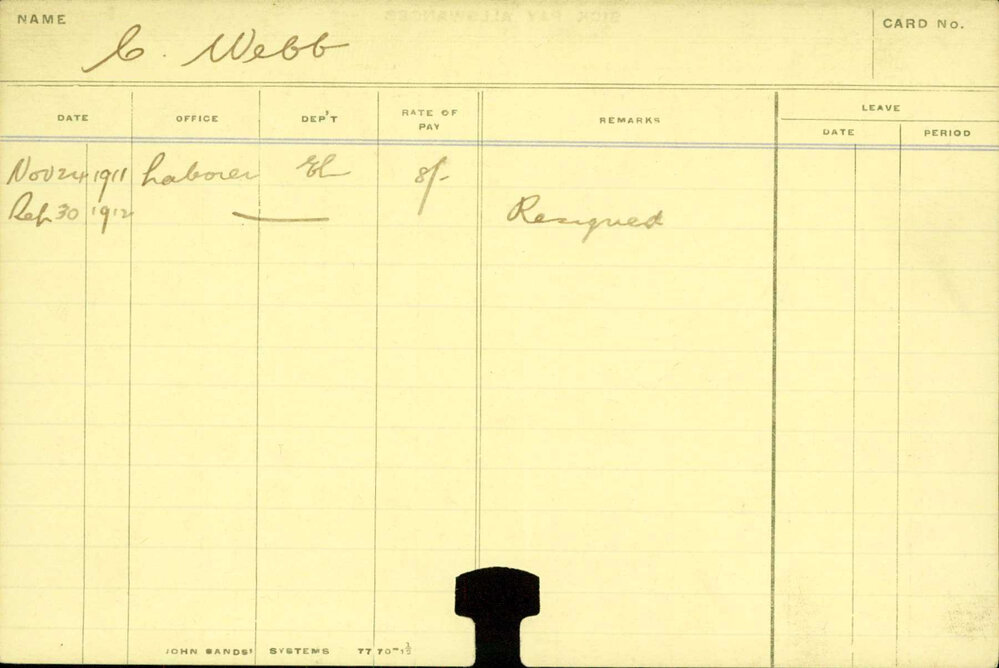 NAME C. Webb CARD No.
DATE OFFICE DEP'T RATE OF PAY REMARKS LEAVE
DATE PERIOD
Nov 24 1911 Laborer El 8/-
Sep 30 1912 —— Resigned
JOHN SANDS' SYSTEMS